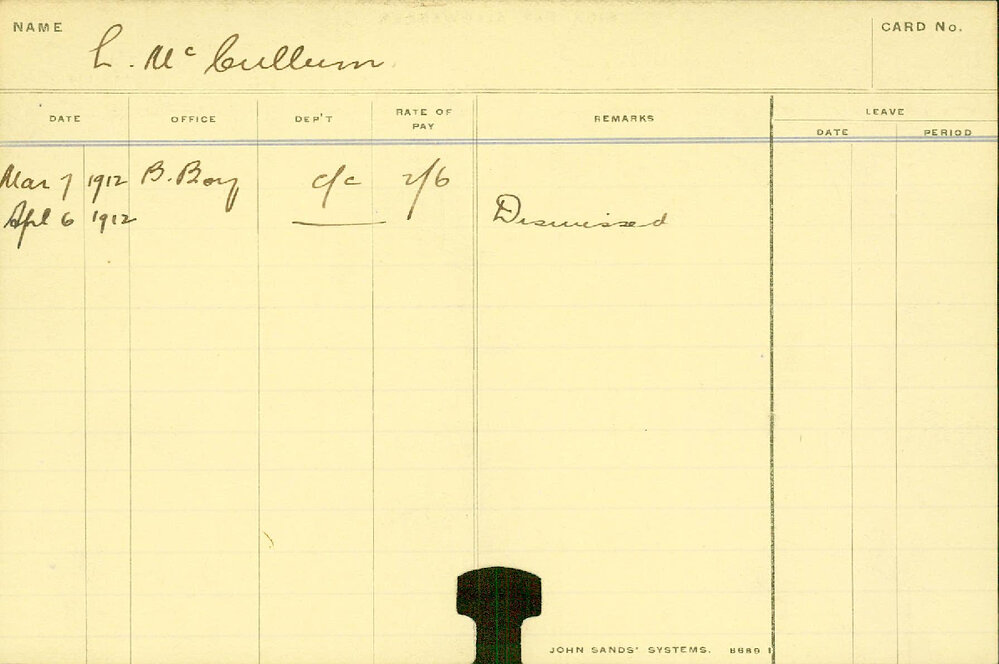 NAME
L. McCullum
CARD No.
DATE OFFICE DEP'T RATE OF PAY REMARKS LEAVE
DATE PERIOD
Mar 7 1912 B. Boy c/c 2/6
Apl 6 1912 Dismissed
JOHN SANDS' SYSTEMS. 8689